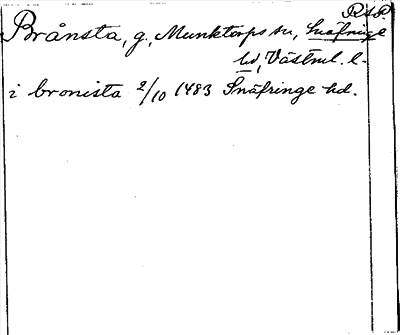 R.A.P.
Brånsta, g, Munktorps sn, Snäfringe
hd, Västml. l.
i bronista 2/10 1483 Snäfringe hd.